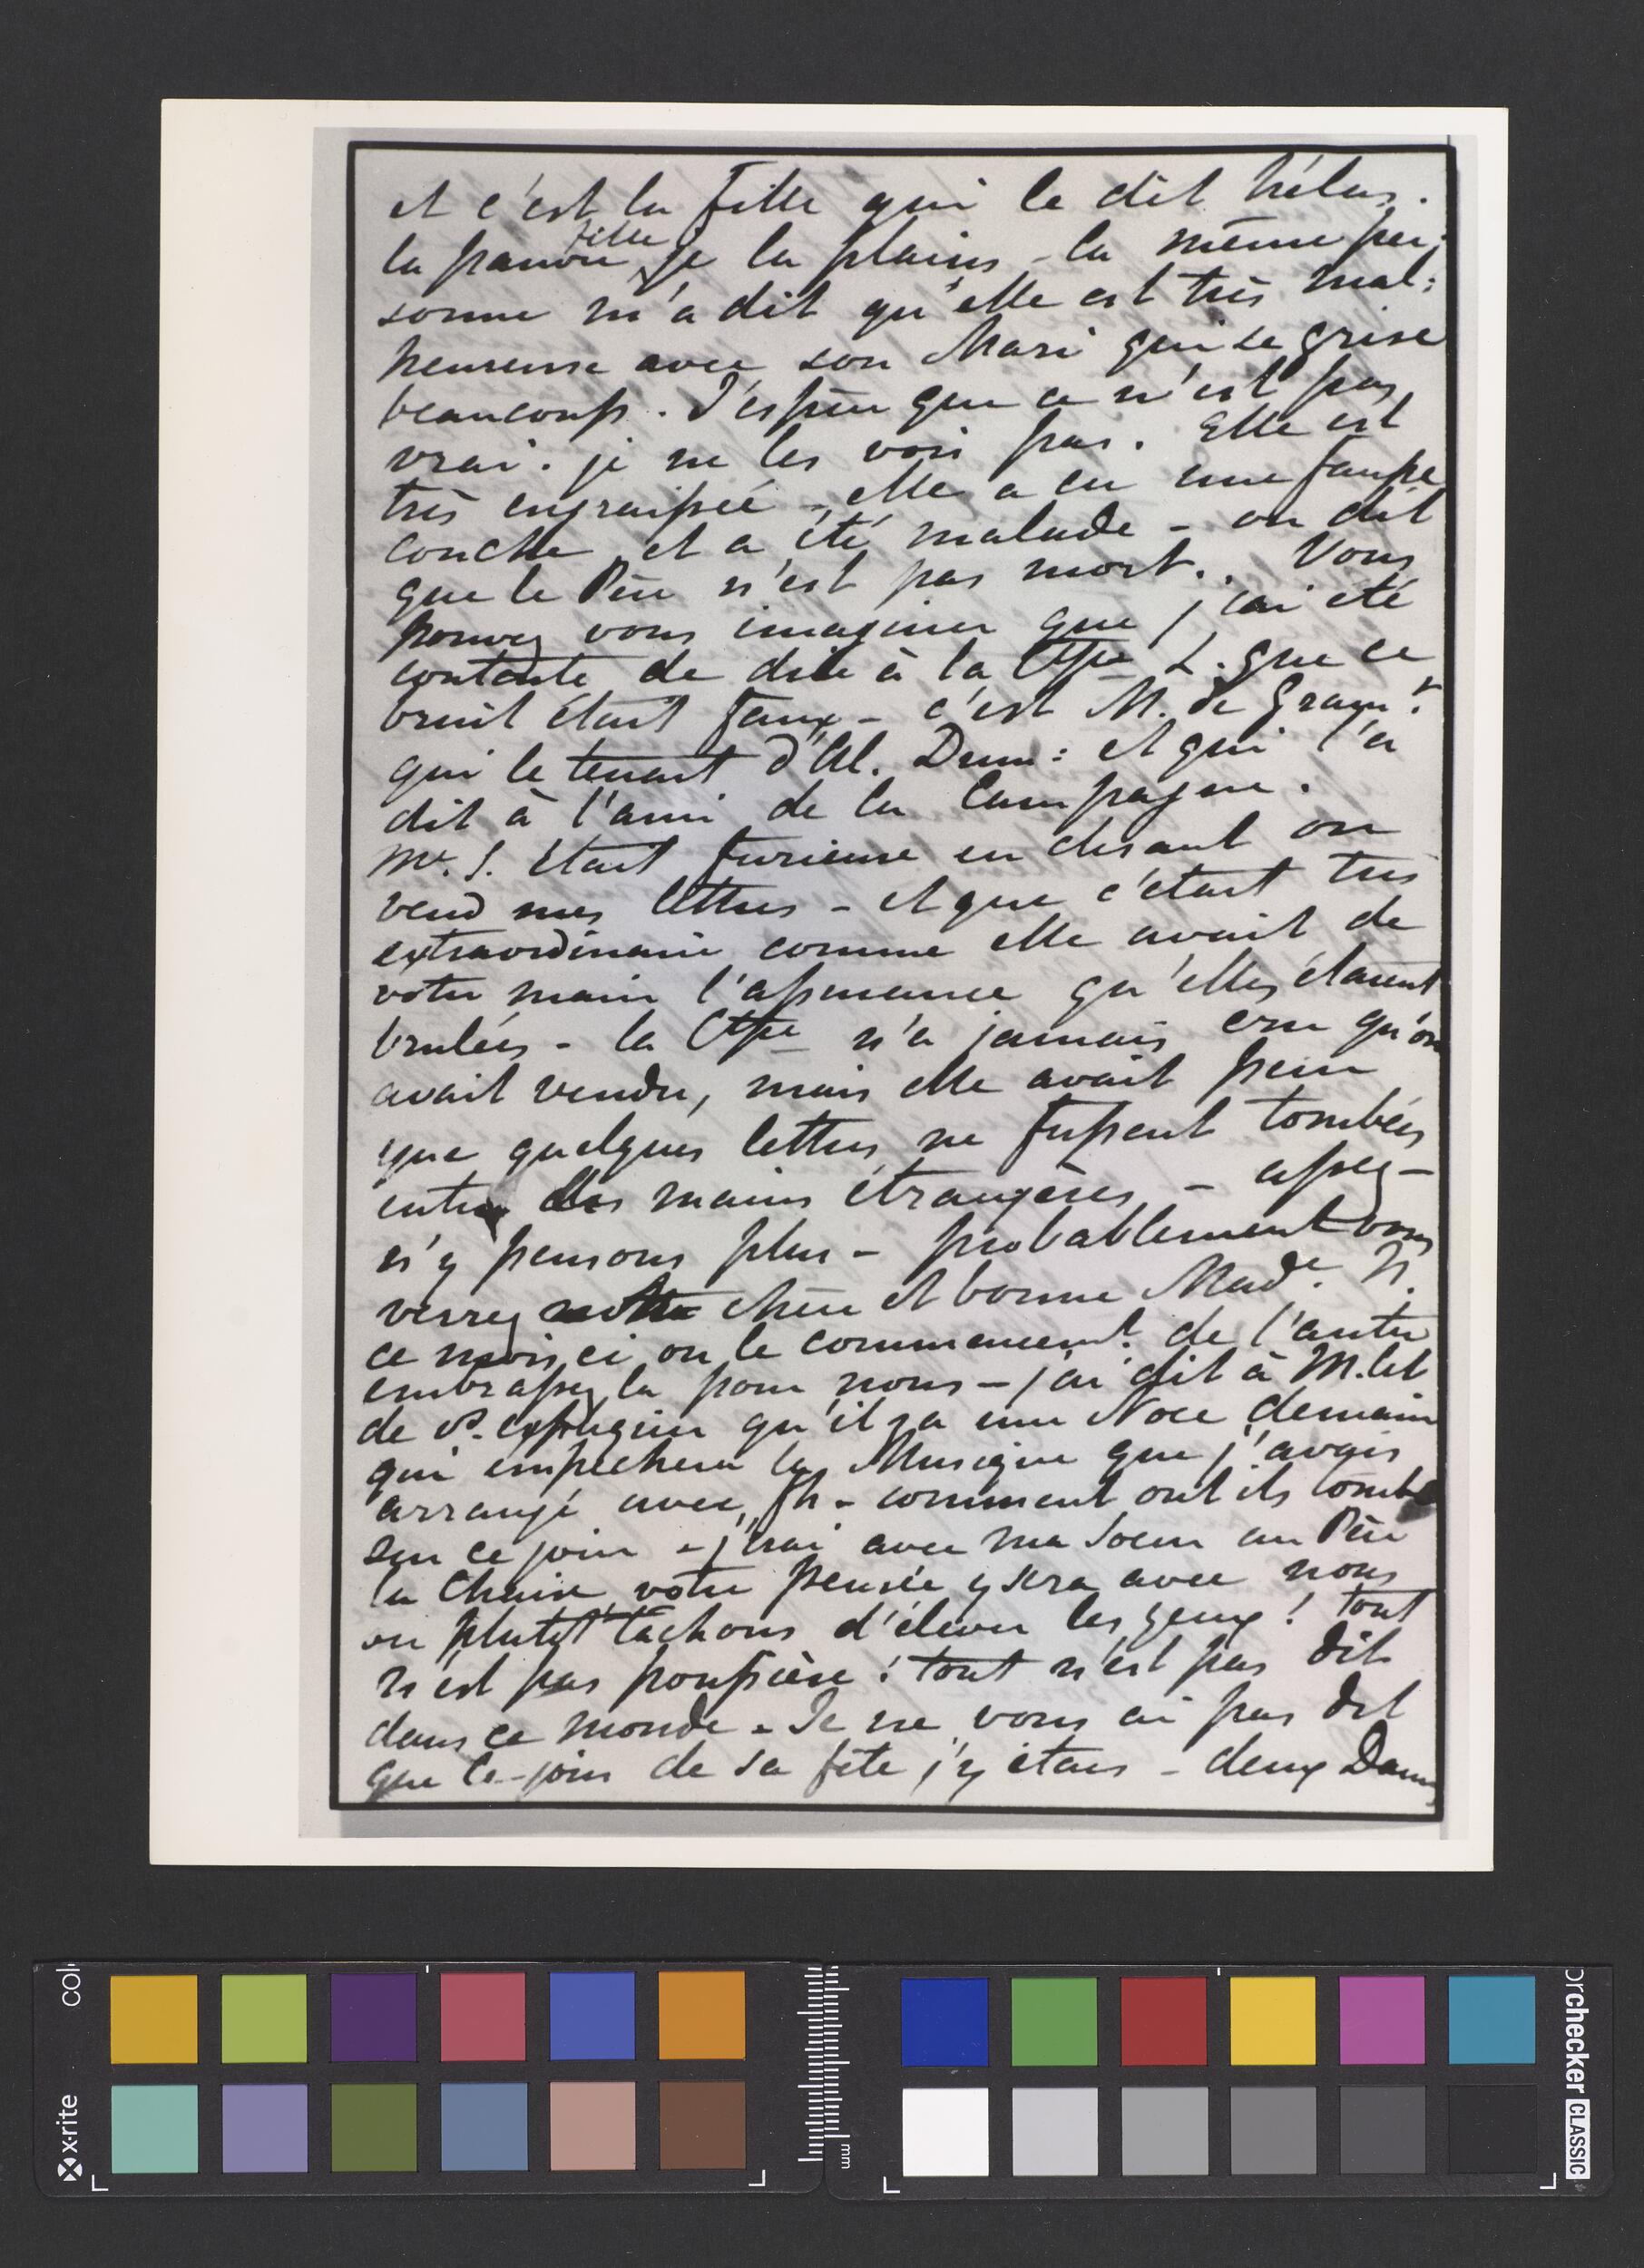 et c'est la fille qui le dit hélas.
la pauvre fille je la plains - la même per:
sonne m'a dit qu'elle est très mal:
heureuse avec son Mari qui se grise
beaucoup. J'espère que ce n'est pas
vrai. je ne les vois pas. Elle est
très engraissée - elle a eu une fausse
couche et a été malade - on dit
que le Père n'est pas mort.. Vous
pouvez vous imaginer que j'ai été
contente de dire à la Ctsse L. que ce
bruit était faux - c'est M. de Gram.t
qui le tenait d'Al. Dum: et qui l'a
dit à l'ami de la Campagne.
Me. S. était furieuse en disant on
vend mes lettres - et que c'était très
extraordinaire comme elle avait de
votre main l'assurance qu'elles étaient
brulées - la Ctsse n'a jamais cru qu'on
avait vendu, mais elle avait peur
que quelques lettres ne fussent tombées
entre des mains étrangères - assez -
n'y pensons plus - probablement vous
verrez chère et bonne Made. N.
ce mois ci ou le commencemt. de l'autre
embrassez la pour nous - j'ai dit à M.
de qu'il y a une Noce demain
qui empechera la Musique que j'avais
arrangé avec Fr. - comment ont ils tombé
sur ce jour - j'irai avec ma Soeur au Père
la Chaise votre pensée y sera avec nous
ou plutot tachons d'élever les yeux! tout
n'est pas poussière! tout n'est pas dit
dans ce monde - Je ne vous ai pas dit
que le jour de sa fête j'y étais - deux Dames
x-rite
colorchecker CLASSIC
mm